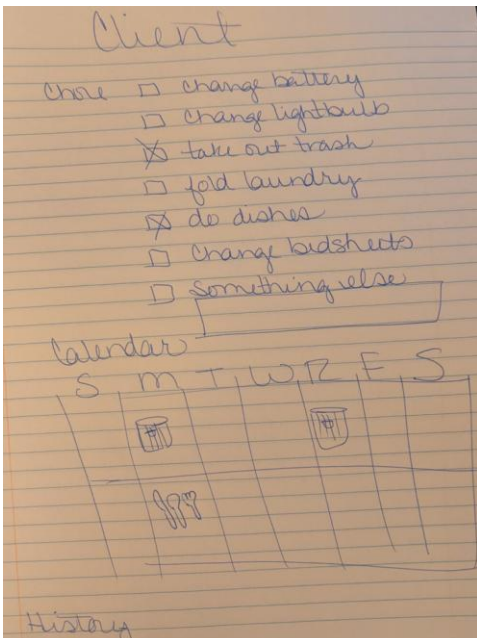 Client
Chore change battery
change lightbulb
take out trash
fold laundry
do dishes
change bedsheets
something else
Calendar
S M T W R F S
History